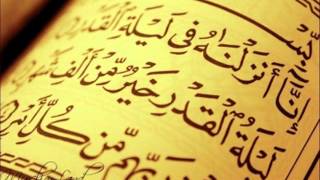 بِسْمِ
إِنَّا أَنزَلْنَاهُ فِي لَيْلَةِ الْقَدْرِ
لَيْلَةُ الْقَدْرِ خَيْرٌ مِّنْ أَلْفِ شَهْرٍ
رَبِّهِم مِّن كُلِّ أَمْرٍ